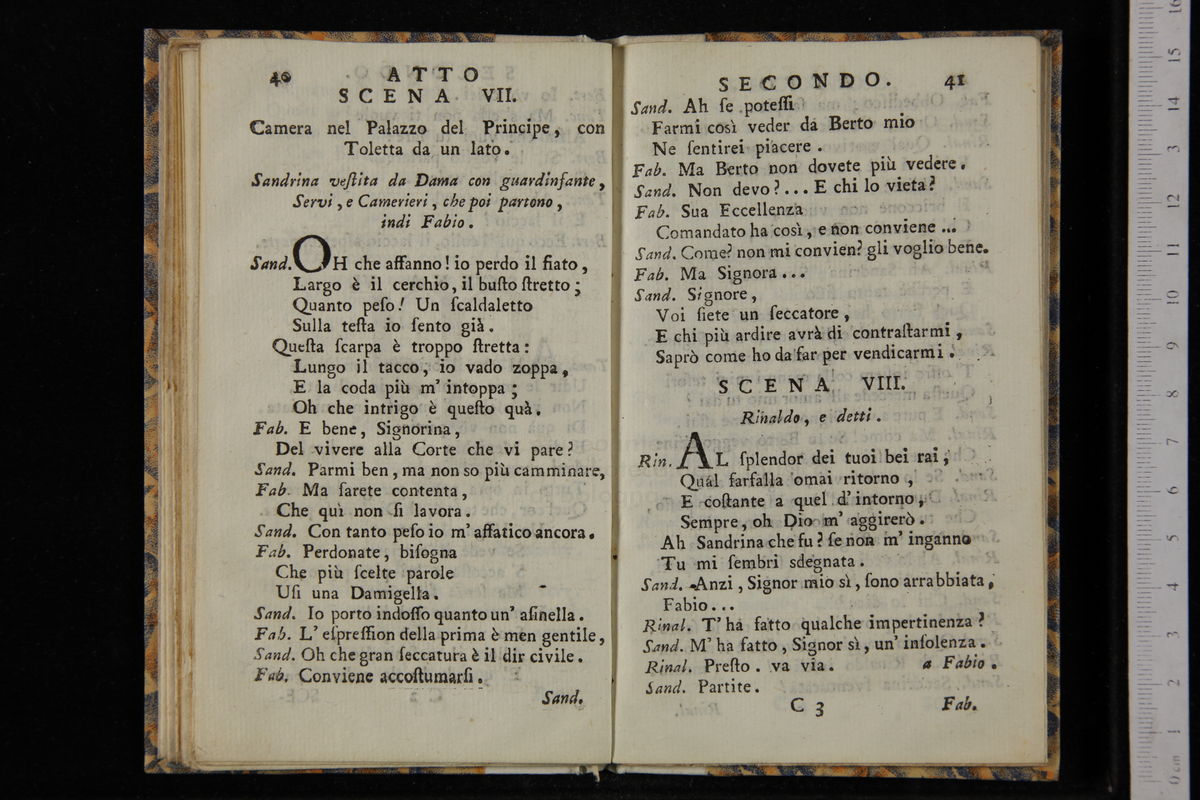 40 ATTO
SCENA VII.
Camera nel Palazzo del Principe, con
Toletta da un lato.
Sandrina veſtita da Dama con guardinfante,
Servi, e Camerieri, che poi partono,
indi Fabio.
Sand. OH che affanno! io perdo il fiato,
Largo è il cerchio, il buſto ſtretto;
Quanto peſo! Un ſcaldaletto
Sulla teſta io ſento già.
Queſta ſcarpa è troppo ſtretta:
Lungo il tacco, io vado zoppa,
E la coda più m' intoppa;
Oh che intrigo è queſto quà.
Fab. E bene, Signorina,
Del vivere alla Corte che vi pare?
Sand. Parmi ben, ma non so più camminare,
Fab. Ma ſarete contenta,
Che quì non ſi lavora.
Sand. Con tanto peſo io m' affatico ancora.
Fab. Perdonate, biſogna
Che più ſcelte parole
Uſi una Damigella.
Sand. Io porto indoſſo quanto un' aſinella.
Fab. L' eſpreſſion della prima è men gentile,
Sand. Oh che gran ſeccatura è il dir civile.
Fab. Conviene accoſtumarſi.
Sand.
SECONDO. 41
Sand. Ah ſe poteſſi
Farmi così veder da Berto mio
Ne ſentirei piacere.
Fab. Ma Berto non dovete più vedere.
Sand. Non devo?... E chi lo vieta?
Fab. Sua Eccellenza
Comandato ha così, e non conviene ...
Sand. Come? non mi convien? gli voglio bene.
Fab. Ma Signora...
Sand. Signore,
Voi ſiete un ſeccatore,
E chi più ardire avrà di contraſtarmi,
Saprò come ho da far per vendicarmi.
SCENA VIII.
Rinaldo, e detti.
Rin. AL ſplendor dei tuoi bei rai,
Quál farfalla omai ritorno,
E coſtante a quel d' intorno,
Sempre, oh Dio m' aggirerò.
Ah Sandrina che fu? ſe non m' inganno
Tu mi ſembri sdegnata.
Sand. Anzi, Signor mio sì, ſono arrabbiata,
Fabio...
Rinal. T' ha fatto qualche impertinenza?
Sand. M' ha fatto, Signor sì, un' inſolenza.
Rinal. Preſto. va via. a Fabio.
Sand. Partite.
C 3 Fab.